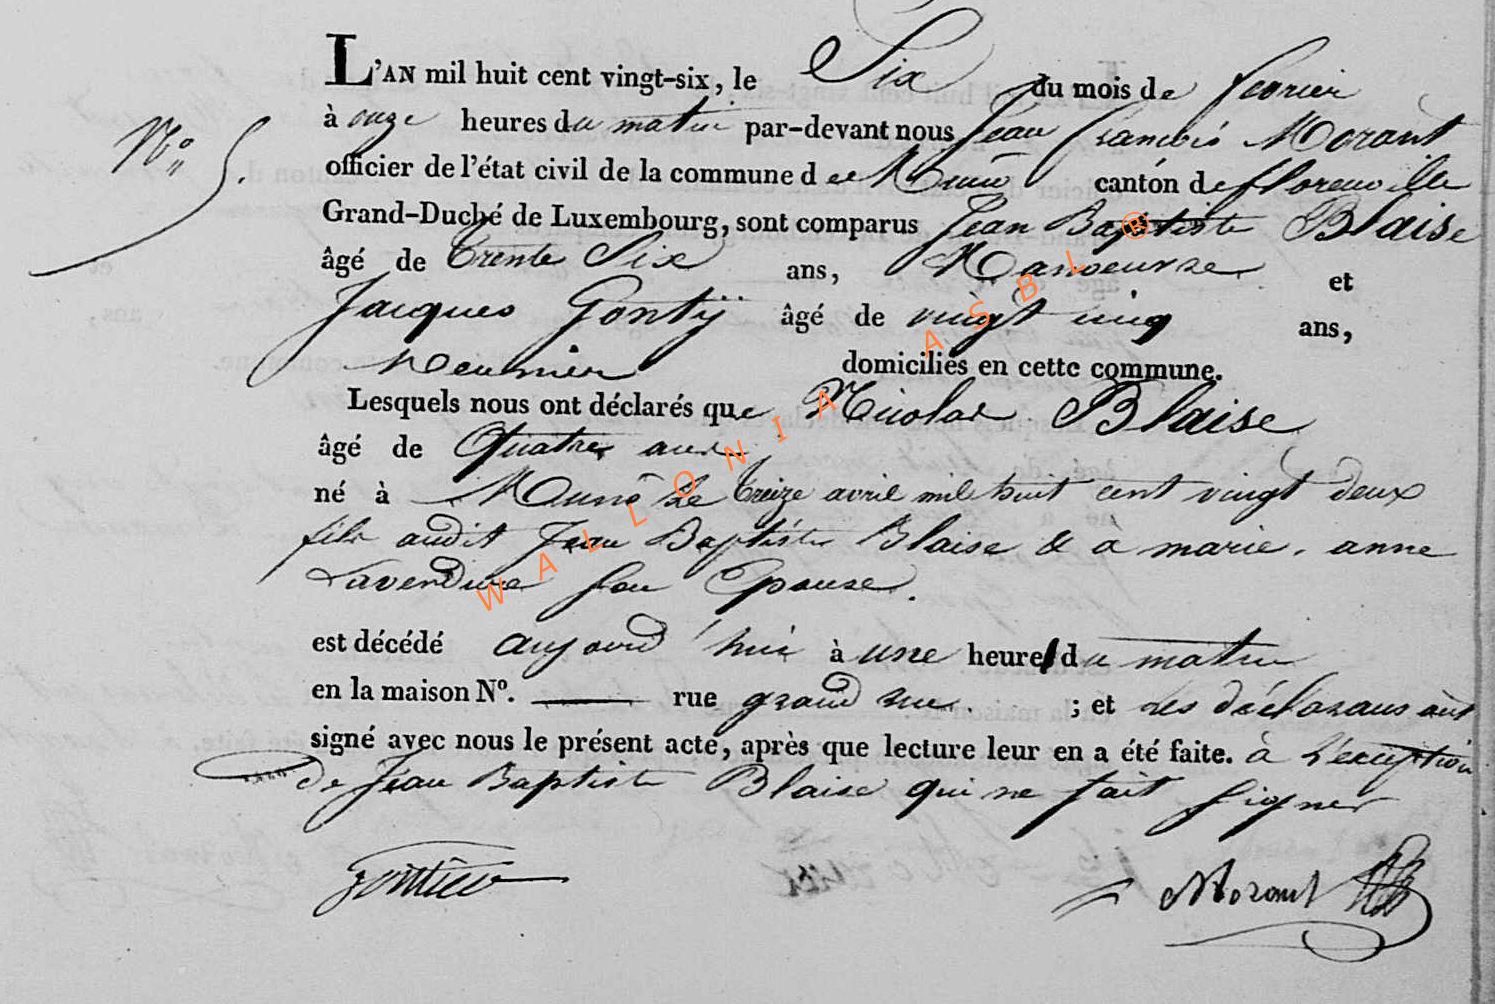 L'AN mil huit cent vingt-six, le Six du mois de fevrier
N° 5. à onze heures du matin par-devant nous Jean francois Morant
officier de l'état civil de la commune de Muno canton de florenville
Grand-Duché de Luxembourg, sont comparus Jean Baptiste Blaise
âgé de trente Six ans, Manoeuvre et
Jacques Gontÿ âgé de vingt cinq ans,
Meunier domiciliés en cette commune.
Lesquels nous ont déclarés que Nicolas Blaise
âgé de Quatre ans
né à Muno Le treize avril mil huit cent vingt deux
fils audit Jean Baptiste Blaise & a marie anne
Laverdure son Epouse.
est décédé aujourd'hui à une heure du matin
en la maison N°. — rue grand rue. ; et Les déclarans ont
signé avec nous le présent acte, après que lecture leur en a été faite. à L'exception
de Jean Baptiste Blaise qui ne sait Signer
Morant
WALLONIA ASBL ®